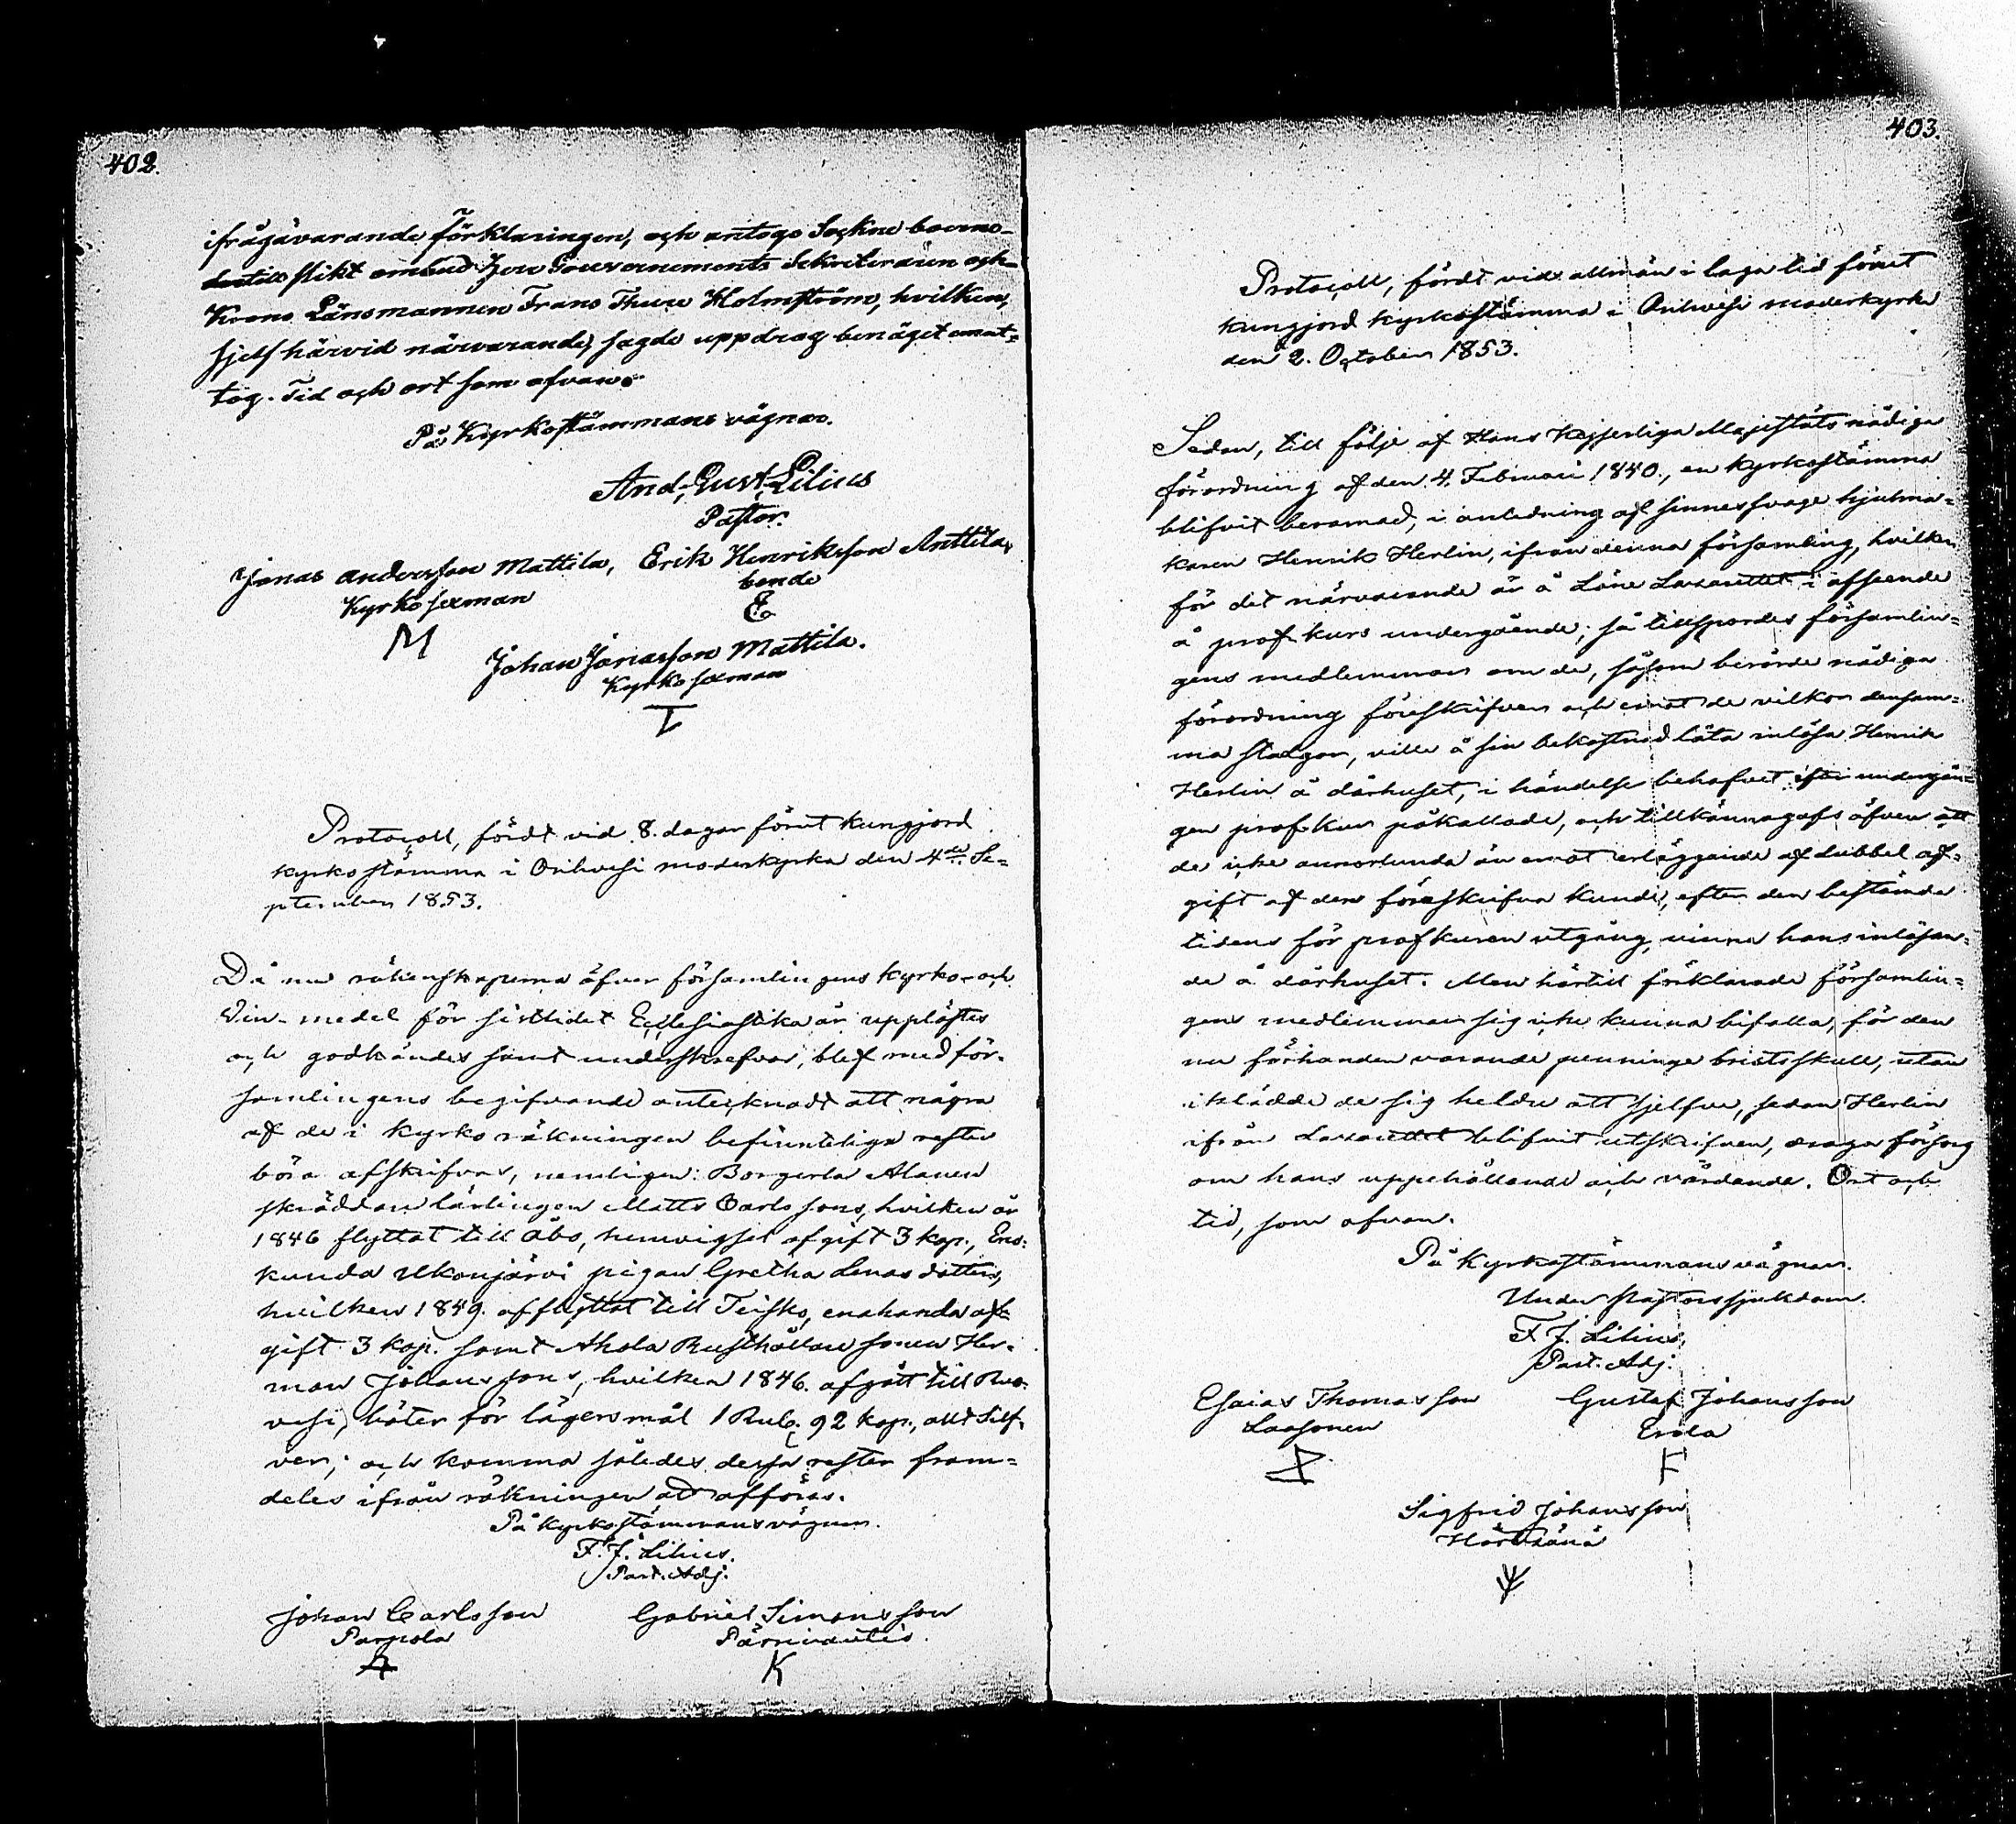 402.
ifrågavarande förklaringen, och antogo Sockneboerne
slikt ombud Herr Gouvernements Sekreteraren och
Krono Länsmannen Frans Thure Holmström, hvilken,
sjelf härvid närvarande, sagde uppdrag benäget emot-
tog. Tid och ort som ofvan.
På Kyrkostämmans vägnar.
And. Gust. Lilius
Pastor.
Jonas Andersson Mattila, Erik Henriksson Anttila,
Kyrko sexman bonde
M E
Johan Jonasson Mattila.
Kyrko sexman
I
Protocoll, fördt vid 8. dagar förut kungjord
kyrkostämma i Orihvesi moderkyrka den 4de Se=
ptember 1853.
Då nu räkenskaperna öfver församlingens Kyrko- och
Vin-medel för sistlidet Ecclesiastika år upplästes
och godkändes samt underskrefvos, blef med för-
samlingens begifvande antecknadt att några
af de i Kyrko räkningen befinnteliga rester
böra afskrifvas, nemligen: Bongerla Alanen
skräddare lärlingen Matts Carlssons, hvilken år
1846 flyttat till Åbo, hemvigsel afgift 3 kop., Ens-
kunda Ukonjärvi pigan Gretha Lenas dotters,
hvilken 1849. afflyttat till Teisko, enahanda af-
gift 3 kop. samt Ahola Rusthållare sonen Her-
man Johanssons, hvilken 1846. afgått till Ruo-
vesi, böter för lägersmål 1 Rub. 92 kop., allt Silf-
ver; och komma således dessa rester fram=
deles ifrån räkningen att afföras.
På Kyrkostämmans vägnar.
F. J. Lilius.
Past. Adj.
Johan Carlsson Gabriel Simonsson
Parpola
K
403.
Protocoll, fördt vid allmän i laga tid förut
kungjord kyrkostämma i Orihvesi moderkyrka
den 2. October 1853.
Sedan, till följe af Hans Kejserliga Majestäts nådiga
förordning af den 4. Februari 1840., en kyrkostämma
blifvit beramad, i anledning af sinnessvage hjulma=
karen Henrik Herlin, ifrån denna församling, hvilken
för det närvarande är å Läne Lazarettet i afseende
å profkurs undergående; så tillspordes församlin=
gens medlemmar om de, såsom berörde nådiga
förordning föreskrifver och emot de vilkor densam=
ma stadgar, ville å sin bekostnad låta inlösa Henrik
Herlin å dårhuset, i händelse behofvet efter undergån=
gen profkur påkallade, och tillkännagafs äfven att
de icke annorlunda än emot erläggande af dubbel af=
gift af den föreskrifna kunde, efter den bestämda
tidens för profkuren utgång, vinna hans inlösan=
de å dårhuset. Men härtill förklarade församlin=
gens medlemmar sig icke kunna bifalla, för den
nu förhanden varande penninge brists skull, utan
iklädde de sig heldre att sjelfva, sedan Herlin
ifrån Lazarettet blifvit utskrifven, draga försorg
om hans uppehållande och vårdande. Ort och
tid, som ofvan.
På Kyrkostämmans vägnar.
Under Pastors sjukdom.
F. J. Lilius,
Past. Adj.
Esaias Thomasson Gustaf Johansson
Laasonen Erola
F
Sigfrid Johansson